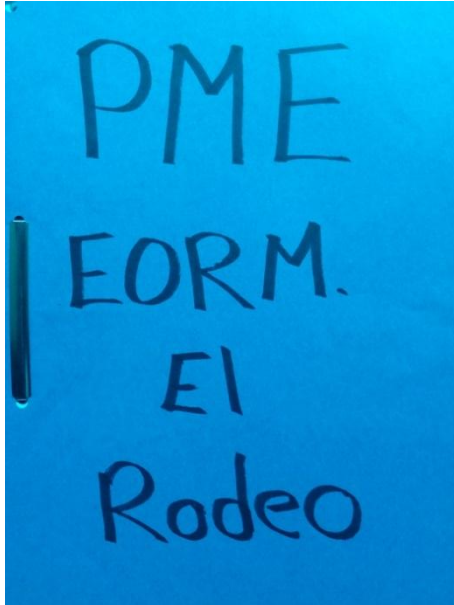 PME
EORM.
El
Rodeo